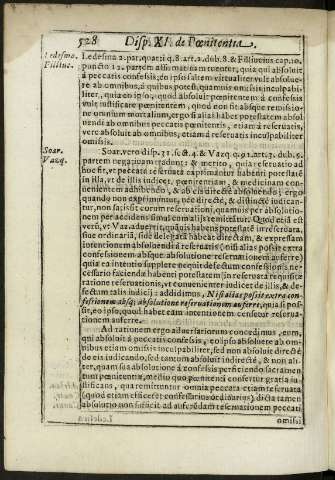 528 Disp. XI. de Pœnitentia.
Ledesma. Filliuc.
Ledesma 2. par. quarti q. 8. art. 2. dub. 8. & Filliucius cap. 10.
puncto 12. partem affirmatiuam tuentur, quia qui absoluit
à peccatis confessis, eo ipso saltem virtualiter vult absoluere
ab omnibus, à quibus potest, & quæ ei omissis inculpabi-
liter, quia eo ipso, quod absoluit pœnitentem à confessis
vult iustificare pœnitentem, quod non fit absque remissio-
ne omnium mortalium, ergo si alias habet potestatem absol-
uendi ab omnibus peccatis omissis, etiam à reseruatis,
vere absoluit ab omnibus, etiam à reseruatis inculpabiliter
omissis.
Soar. Vazq.
Soar. vero disp. 31. sect. 4. & Vazq. q. 91. art. 3. dub. 5.
partem negatiuam tradunt; & merito, quia reseruatio ad
hoc fit, vt peccata reseruata exprimantur habenti potestatẽ
in illa, vt de illis iudicet pœnitentiam, & medicinam con-
uenientem adhibendo, & absolute directe absoluendo; ergo
quando non exprimuntur, nec directe, & distincte iudican-
tur, non satisfit eorum reseruationi, quamuis per absolutio-
nem per accidens simul cum alijs remittatur. Quod etiã est
verũ, vt Vaz. aduertit, quãuis habens potestatẽ in reseruata,
siue ordinariã, siue delegatã habeat directam, & expressam
intentionem absoluendi à reseruatis (nisi alias possit extra
confessionem absque absolutione reseruationem auferre)
quia ea intentio supplere nequit defectum confessionis; ne-
cessario faciendæ habenti potestatem in reseruata requisitæ
ratione reseruationis, vt conuenienter iudicet de illis, & de-
fectum talis iudicij: addidimus, Nisi alias possit extra con-
fessionem absq; absolutione reseruationem auferre, quia si pos-
sit, eo ipso, quod habet eam intentionem censetur reserua-
tionem auferre.
Ad rationem ergo aduersariorum concedimus, eum,
qui absoluit à peccatis confessis, eo ipso absoluere ab om-
nibus etiam omissis inculpabiliter, sed non absoluit directè
de eis iudicando, sed tantum absoluit indirectè, & non ali-
ter, quam ipsa absolutione à confessis perficiendo sacramen-
tum pœnitentiæ, medio quo pœnitenti confertur gratia iu-
stificans, qua remittuntur omnia peccata etiam reseruata
(quod etiam efficeret confessarius ordinarius); dicta tamen
absolutio non sufficit ad auferendam reseruationem peccati
omissi